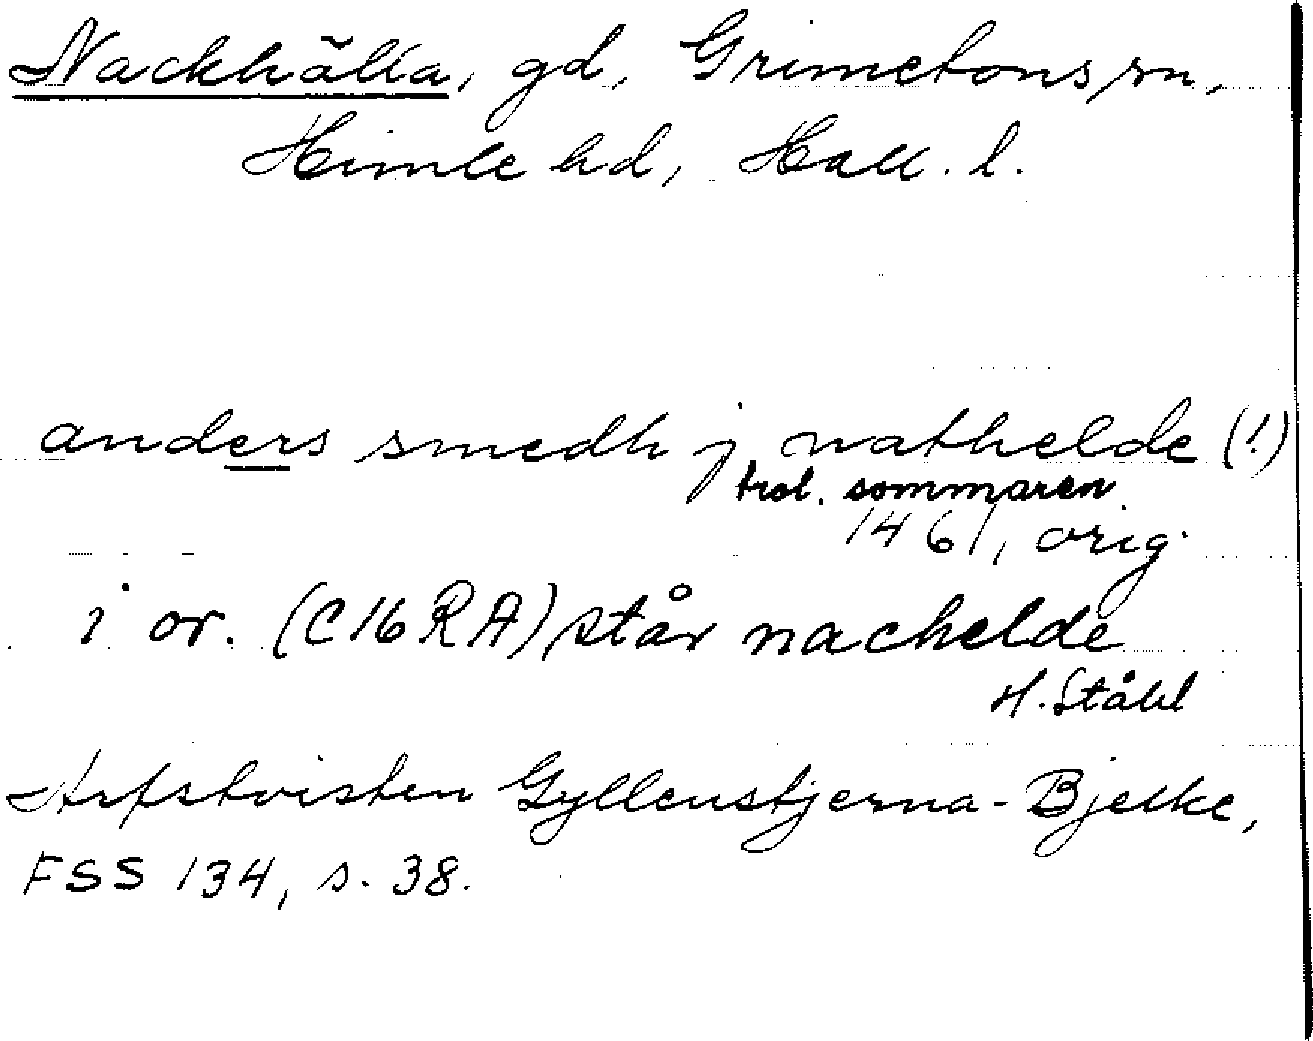 Nackhälla, gd, Grimetons sn,
Himle hd, Hall. l.
anders smedh j nathelde (!)
trol. sommaren
1461, orig.
i or. (C16 RA) står nachelde
H. Ståhl
Arfstvisten Gyllenstjerna-Bjelke,
FSS 134, s. 38.